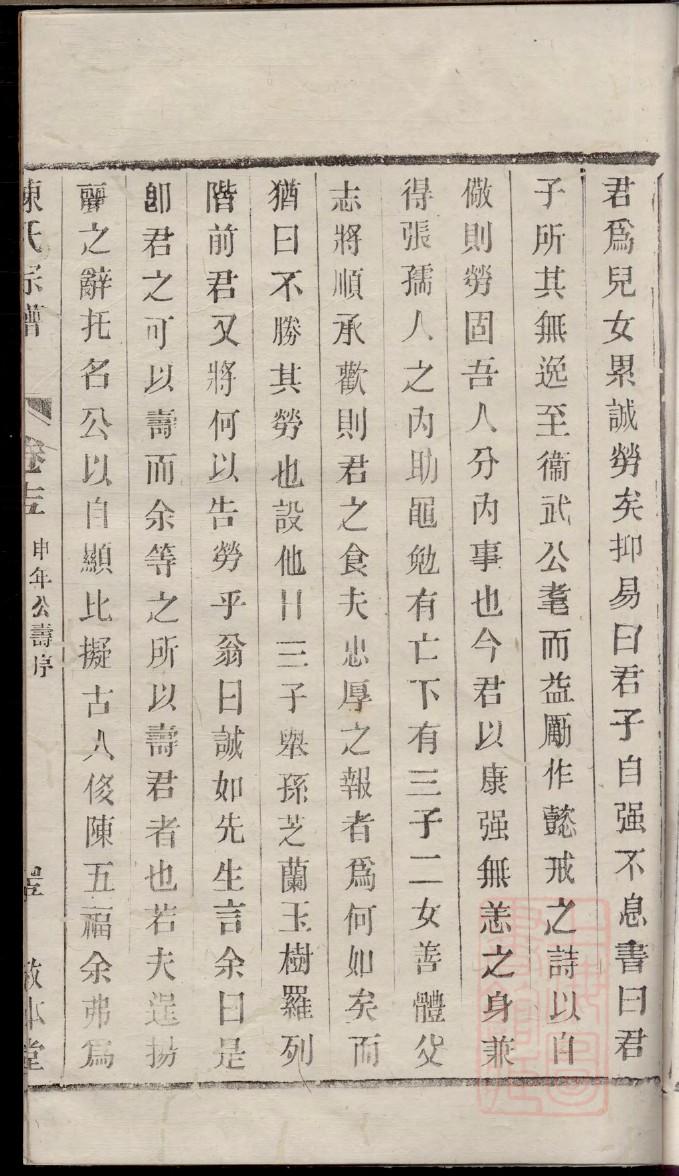 君爲兒女累誠勞矣抑易曰君子自强不息書曰君
子所其無逸至衞武公耄而益勵作懿戒之詩以自
儆則勞固吾人分內事也今君以康强無恙之身兼
得張孺人之內助黽勉有亡下有三子二女善體父
志將順承歡則君之食夫忠厚之報者爲何如矣而
猶曰不勝其勞也設他日三子舉孫芝蘭玉樹羅列
階前君又將何以告勞乎翁曰誠如先生言余曰是
卽君之可以壽而余等之所以壽君者也若夫逞揚
之辭托名公以自顯比擬古人侈陳五福余弗爲
陳氏宗譜 卷 申年公壽序 本堂